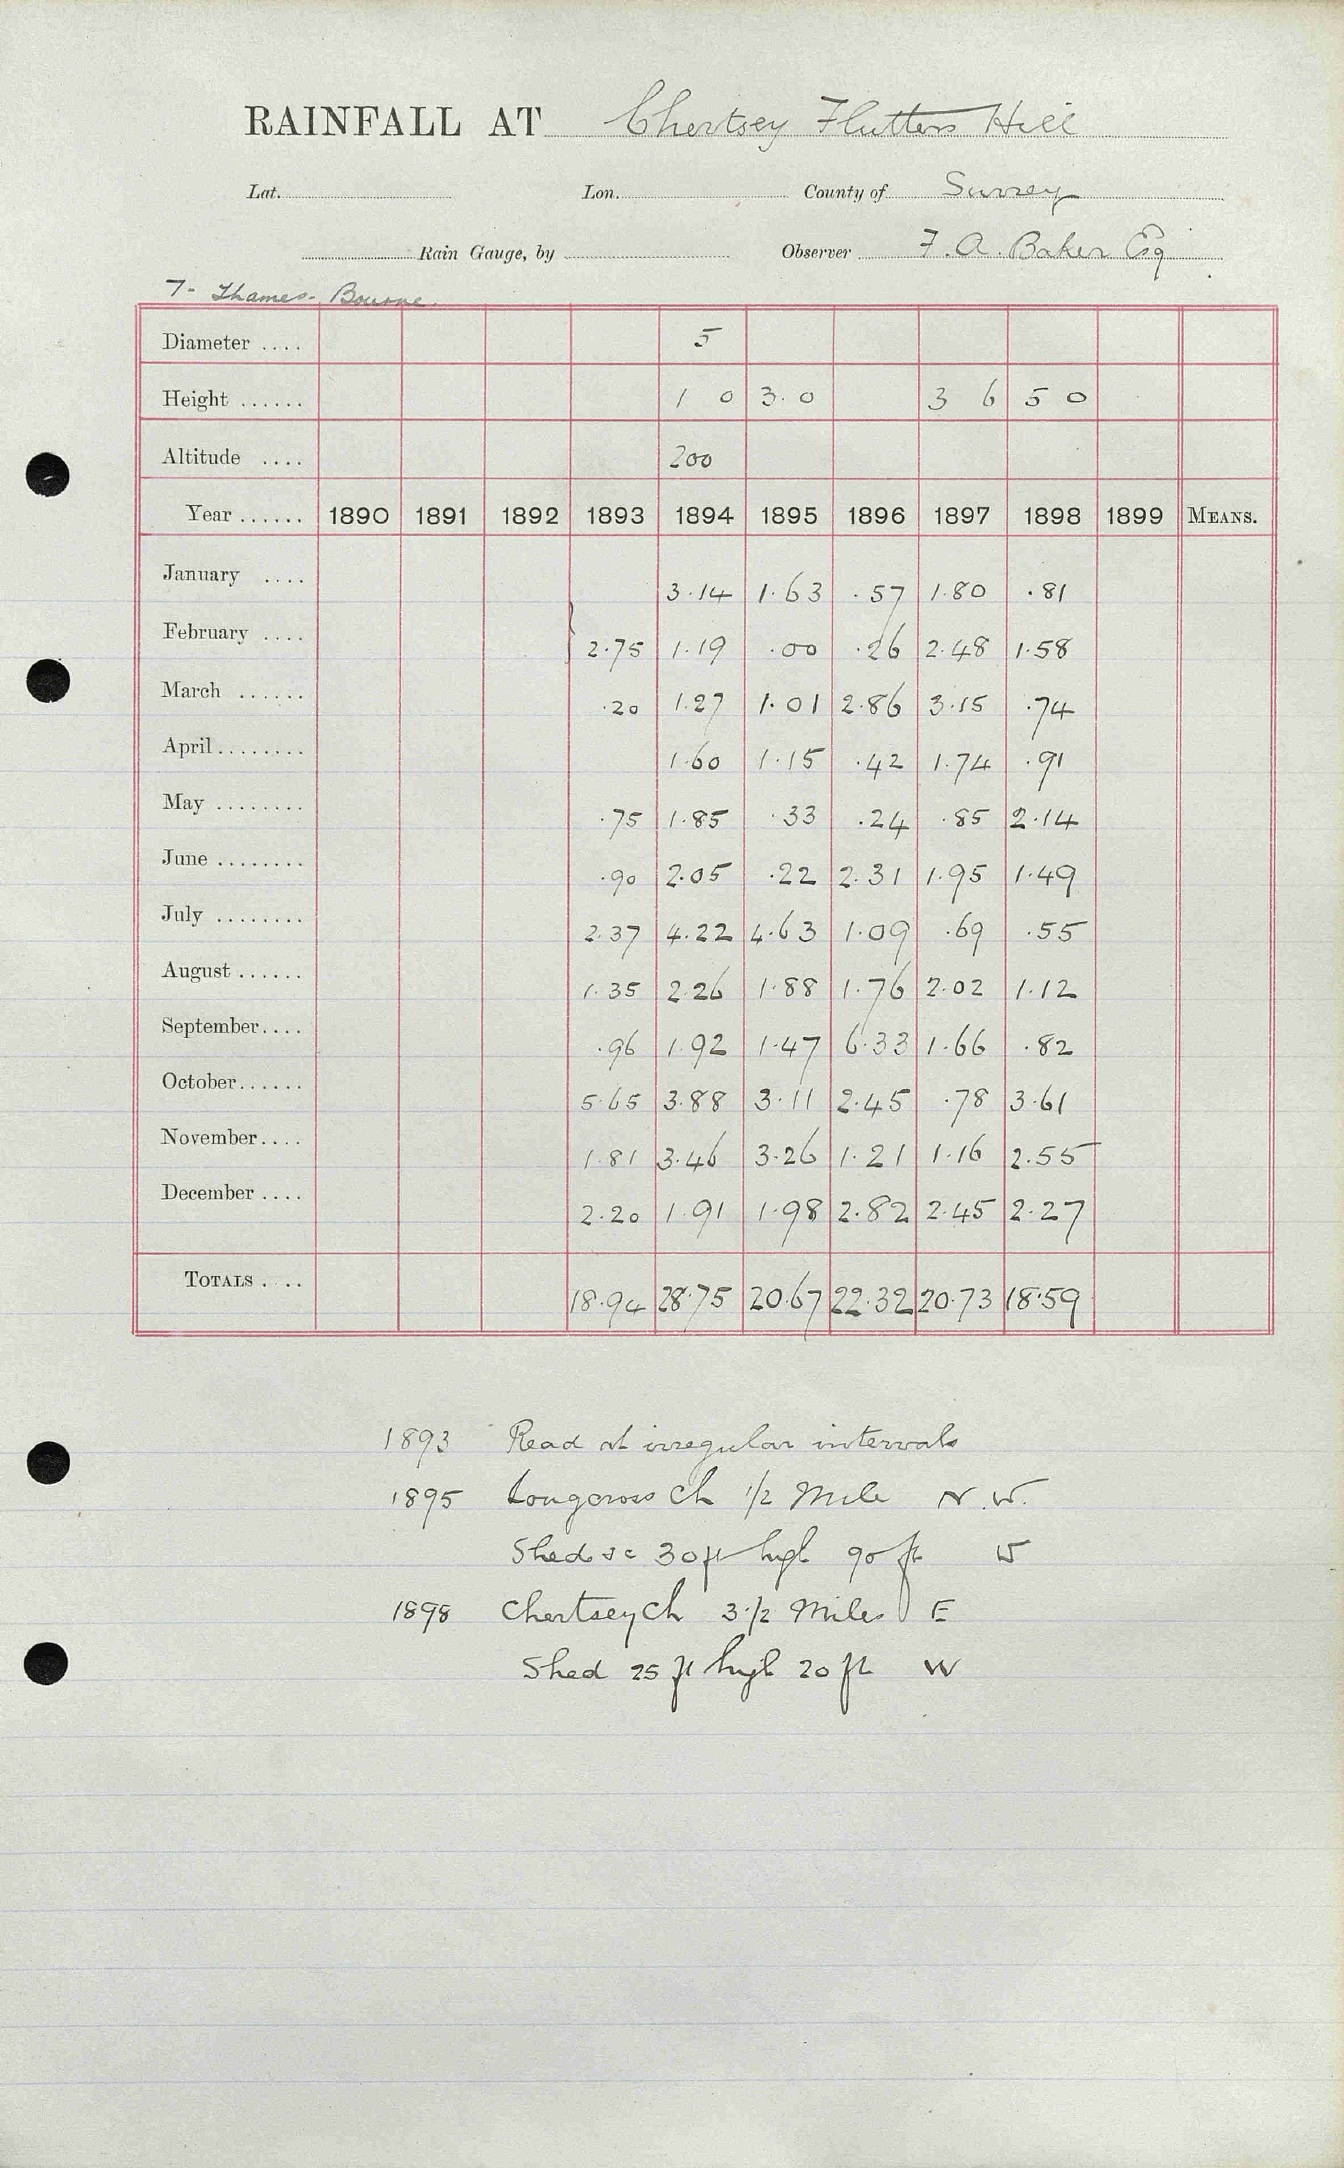 RAINFALL AT Chertsey Flutters Hill
Lat. Lon. County of Surrey
Rain Gauge, by Observer F. A. Baker Esq
7- Thames- Bourne
Diameter .... 5
Height ...... 1 0 3.0 3 6 5 0
Altitude .... 200
Year ...... 1890 1891 1892 1893 1894 1895 1896 1897 1898 1899 MEANS.
January .... 3.14 1.63 .57 1.80 .81
February .... 2.75 1.19 .00 .26 2.48 1.58
March ...... .20 1.27 1.01 2.86 3.15 .74
April ........ 1.60 1.15 .42 1.74 .91
May ........ .75 1.85 .33 .24 .85 2.14
June ........ .90 2.05 .22 2.31 1.95 1.49
July ........ 2.37 4.22 4.63 1.09 .69 .55
August ...... 1.35 2.26 1.88 1.76 2.02 1.12
September.... .96 1.92 1.47 6.33 1.66 .82
October...... 5.65 3.88 3.11 2.45 .78 3.61
November.... 1.81 3.46 3.26 1.21 1.16 2.55
December .... 2.20 1.91 1.98 2.82 2.45 2.27
TOTALS .... 18.94 28.75 20.67 22.32 20.73 18.59
1893 Read at irregular intervals
1895 Longcross Ch 1/2 Mile N.W.
Shed &c 30ft high 90 ft W
1898 Chertsey Ch 3 1/2 Miles E
Shed 25 ft high 20 ft W